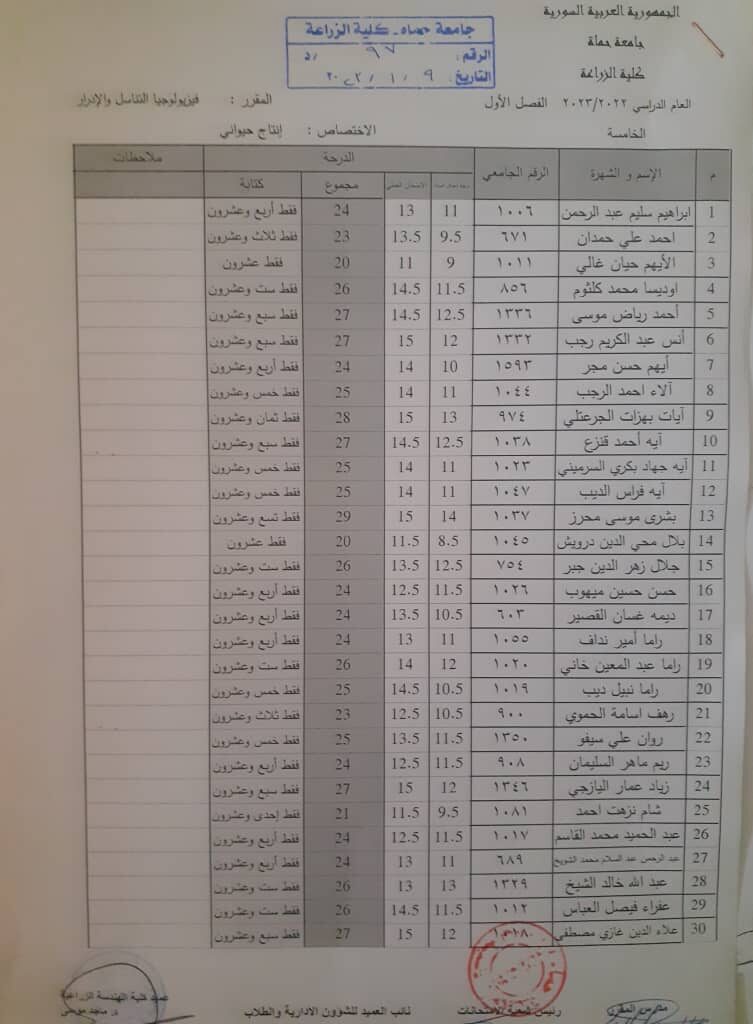 الجمهورية العربية السورية
جامعة حماة
كلية الزراعة
جامعة حماه - كلية الزراعة
الرقم: ٩٧ / د
التاريخ: ٩ / ١ / ٢٠٢
العام الدراسي ٢٠٢٣/٢٠٢٢ الفصل الأول المقرر : فيزيولوجيا التناسل والإدرار
الخامسة الاختصاص : إنتاج حيواني
م الإسم و الشهرة الرقم الجامعي الدرجة ملاحظات
مجموع كتابة
1 ابراهيم سليم عبد الرحمن ١٠٠٦ 11 13 24 فقط أربع وعشرون
2 احمد علي حمدان ٦٧١ 9.5 13.5 23 فقط ثلاث وعشرون
3 الأيهم حيان غالي ١٠١١ 9 11 20 فقط عشرون
4 اوديسا محمد كلثوم ٨٥٦ 11.5 14.5 26 فقط ست وعشرون
5 أحمد رياض موسى ١٣٣٦ 12.5 14.5 27 فقط سبع وعشرون
6 أنس عبد الكريم رجب ١٣٣٢ 12 15 27 فقط سبع وعشرون
7 أيهم حسن مجر ١٥٩٣ 10 14 24 فقط أربع وعشرون
8 آلاء احمد الرجب ١٠٤٤ 11 14 25 فقط خمس وعشرون
9 آيات بهزات الجرعتلي ٩٧٤ 13 15 28 فقط ثمان وعشرون
10 آيه أحمد قنزع ١٠٣٨ 12.5 14.5 27 فقط سبع وعشرون
11 آيه جهاد بكري السرميني ١٠٢٣ 11 14 25 فقط خمس وعشرون
12 آيه فراس الديب ١٠٤٧ 11 14 25 فقط خمس وعشرون
13 بشرى موسى محرز ١٠٣٧ 14 15 29 فقط تسع وعشرون
14 بلال محي الدين درويش ١٠٤٥ 8.5 11.5 20 فقط عشرون
15 جلال زهر الدين جبر ٧٥٤ 12.5 13.5 26 فقط ست وعشرون
16 حسن حسين ميهوب ١٠٢٦ 11.5 12.5 24 فقط أربع وعشرون
17 ديمه غسان القصير ٦٠٣ 10.5 13.5 24 فقط أربع وعشرون
18 راما أمير نداف ١٠٥٥ 11 13 24 فقط أربع وعشرون
19 راما عبد المعين خاني ١٠٢٠ 12 14 26 فقط ست وعشرون
20 راما نبيل ديب ١٠١٩ 10.5 14.5 25 فقط خمس وعشرون
21 رهف اسامة الحموي ٩٠٠ 10.5 12.5 23 فقط ثلاث وعشرون
22 روان علي سيفو ١٣٥٠ 11.5 13.5 25 فقط خمس وعشرون
23 ريم ماهر السليمان ٩٠٨ 11.5 12.5 24 فقط أربع وعشرون
24 زياد عمار اليازجي ١٣٤٦ 12 15 27 فقط سبع وعشرون
25 شام نزهت احمد ١٠٨١ 9.5 11.5 21 فقط إحدى وعشرون
26 عبد الحميد محمد القاسم ١٠١٧ 11.5 12.5 24 فقط أربع وعشرون
27 عبد الرحمن عبد السلام محمد الشويخ ٦٨٩ 11 13 24 فقط أربع وعشرون
28 عبد الله خالد الشيخ ١٣٢٩ 13 13 26 فقط ست وعشرون
29 عفراء فيصل العباس ١٠١٢ 11.5 14.5 26 فقط ست وعشرون
30 علاء الدين غازي مصطفى ١٣١٨ 12 15 27 فقط سبع وعشرون
مدرس المقرر رئيس شعبة الامتحانات نائب العميد للشؤون الادارية والطلاب عميد كلية الهندسة الزراعية
د. ماجد موسى